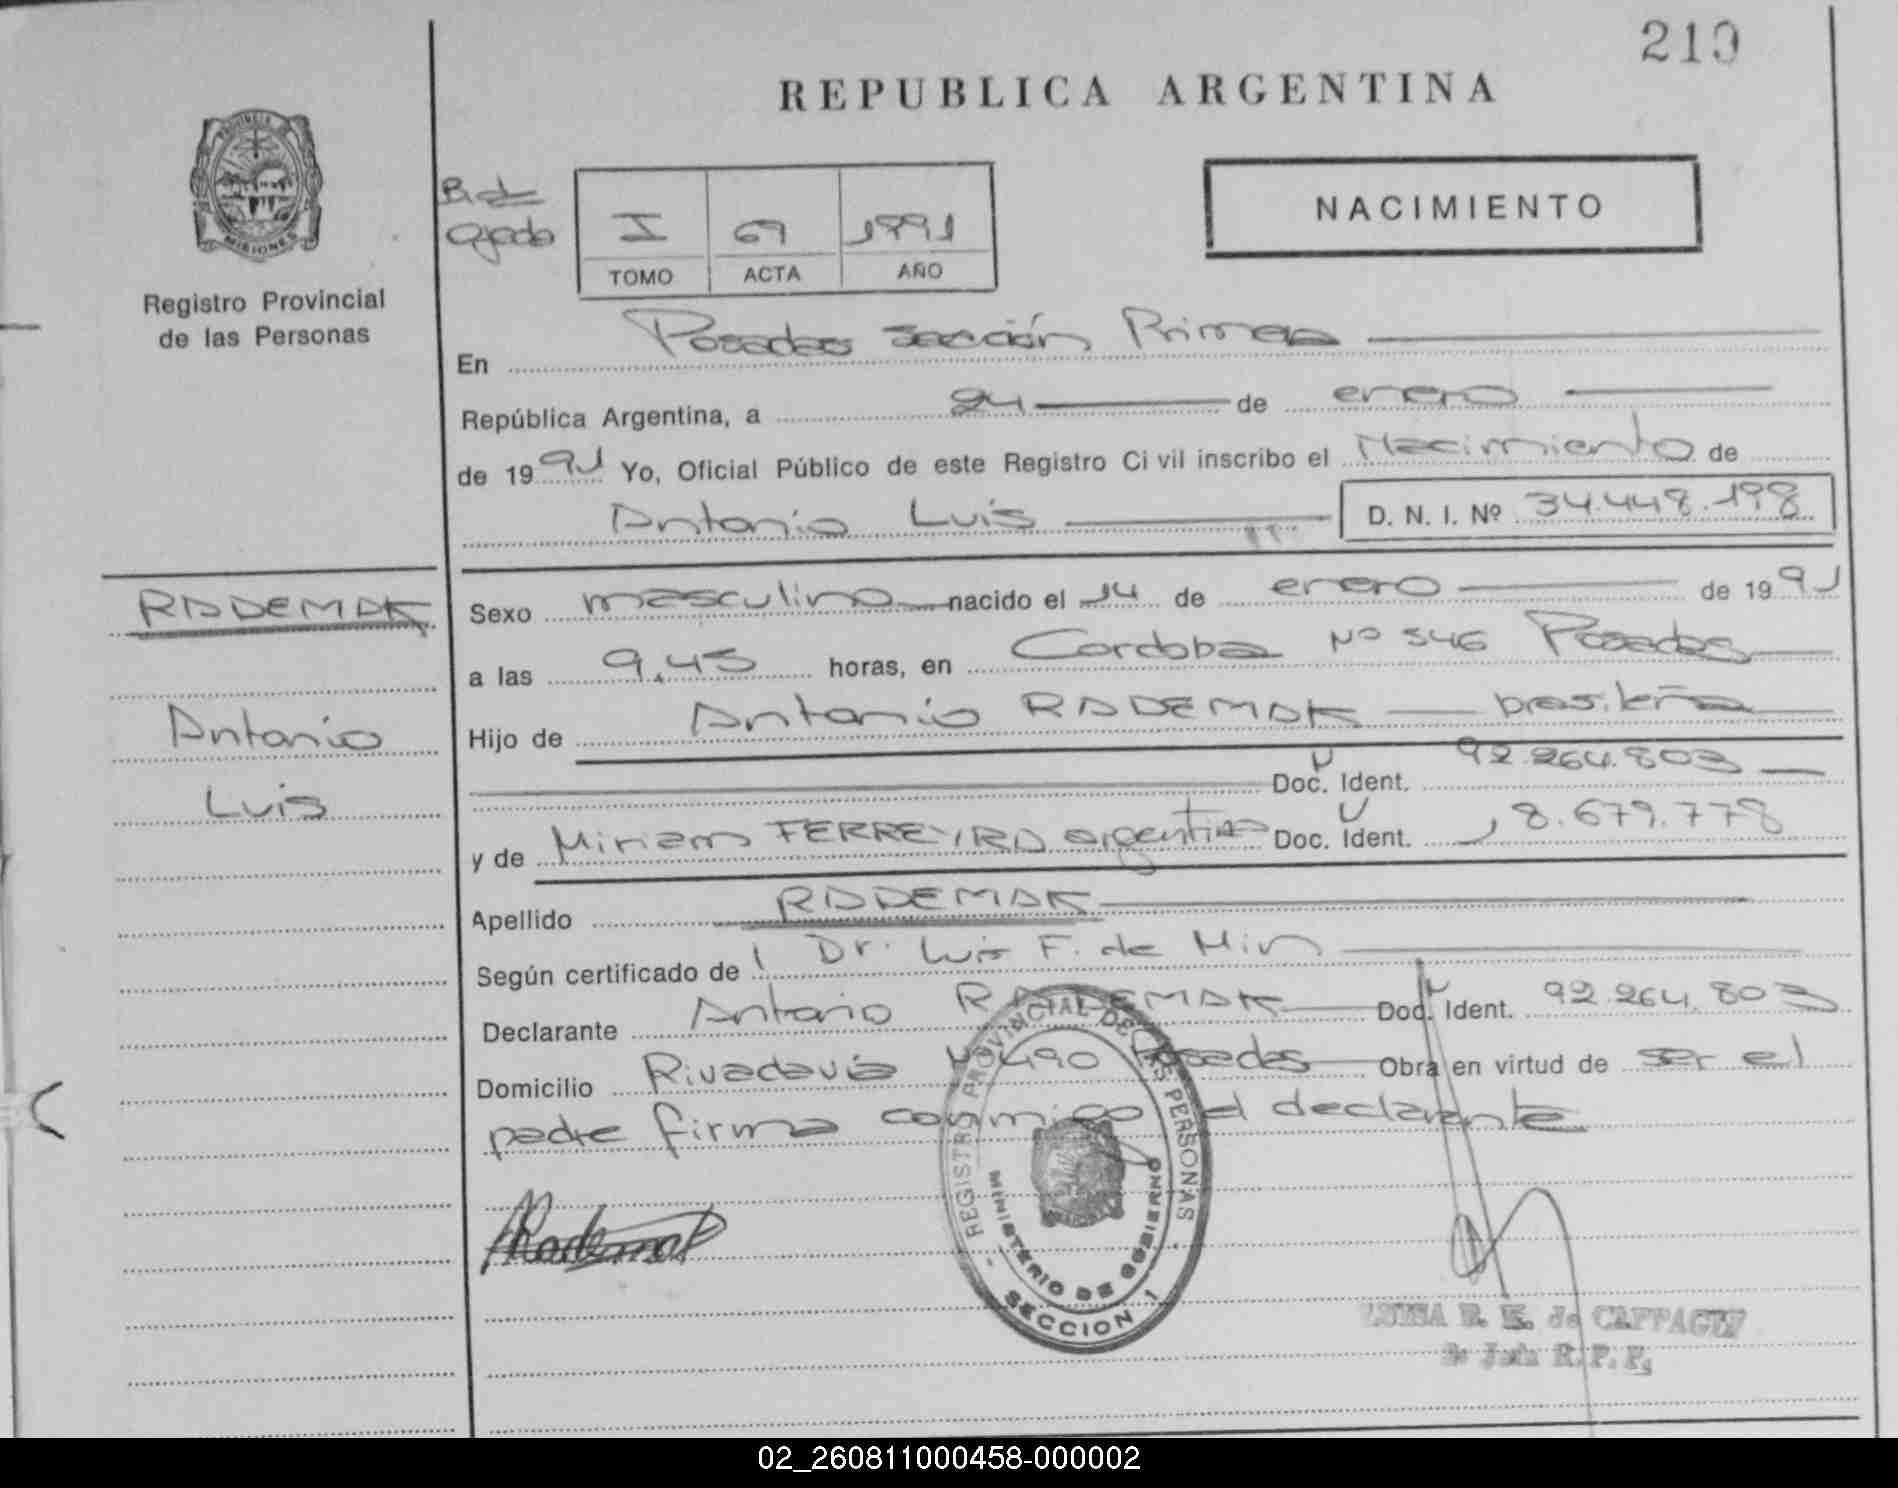 210
REPUBLICA ARGENTINA
PROVINCIA DE
MISIONES
Registro Provincial
de las Personas
I 69 1991
TOMO ACTA AÑO
NACIMIENTO
En Posadas sección Primera
República Argentina, a 24 de enero
de 1991 Yo, Oficial Público de este Registro Civil inscribo el Nacimiento de
Antonio Luis D. N. I. Nº 34.448.198
RADEMAK
Antonio
Luis
Sexo masculino nacido el 14 de enero de 1991
a las 9,45 horas, en Cordoba Nº 546 Posadas
Hijo de Antonio RADEMAK brasileña
Doc. Ident. 92.264.803
y de Miriam FERREYRA argentina Doc. Ident. 18.679.778
Apellido RADEMAK
Según certificado de Dr. Luis F. de Miri
Declarante Antonio RADEMAK Doc. Ident. 92.264.803
Domicilio Rivadavia Nº 490 Posadas Obra en virtud de ser el
padre firma conmigo el declarante
Rademak
REGISTRO PROVINCIAL DE LAS PERSONAS
MINISTERIO DE GOBIERNO
SECCION 1
LUISA de
R. P. P.
02_260811000458-000002